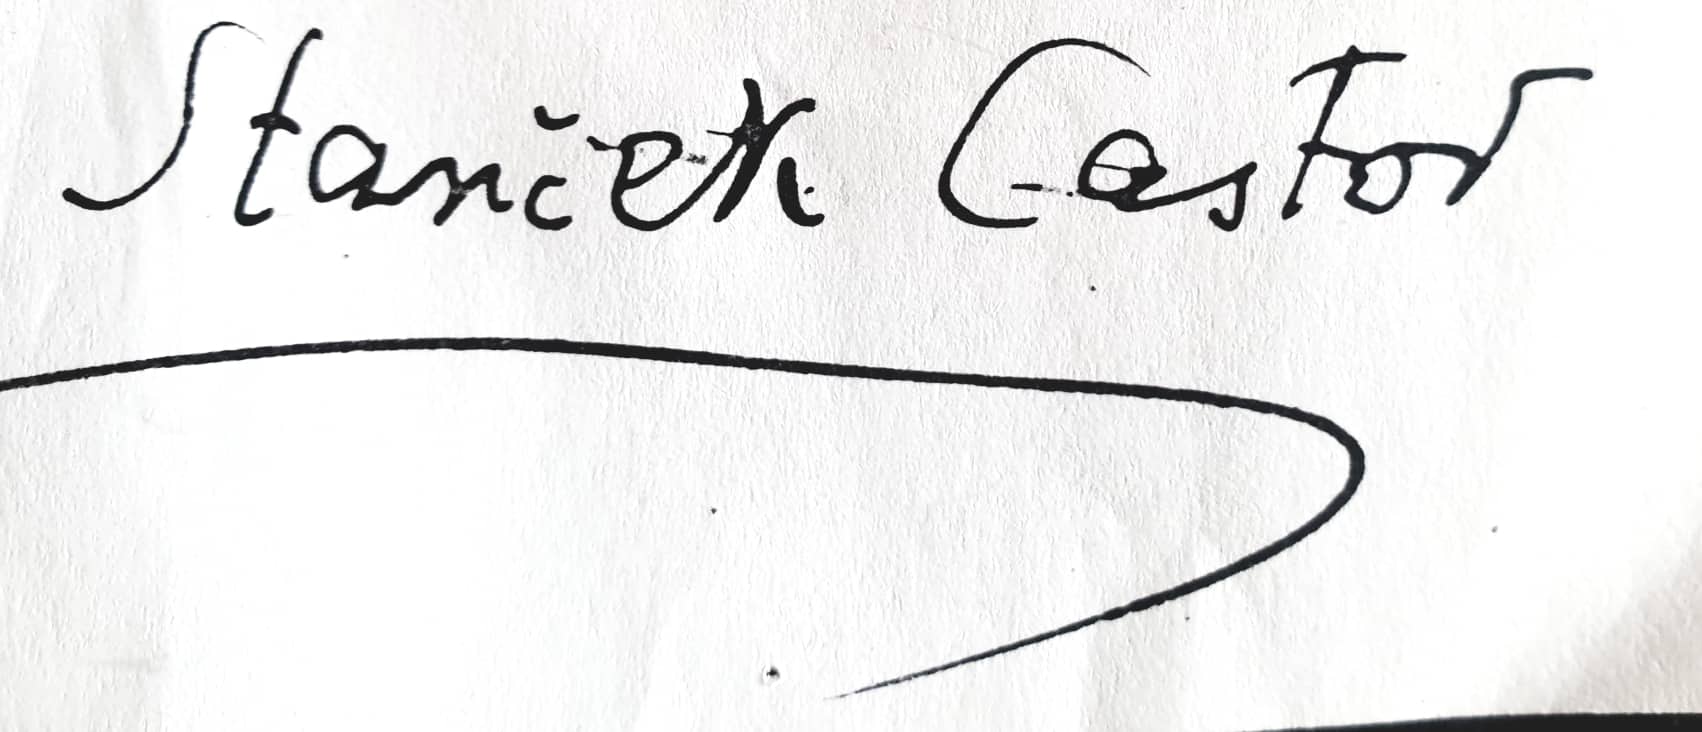 Stanček Castor